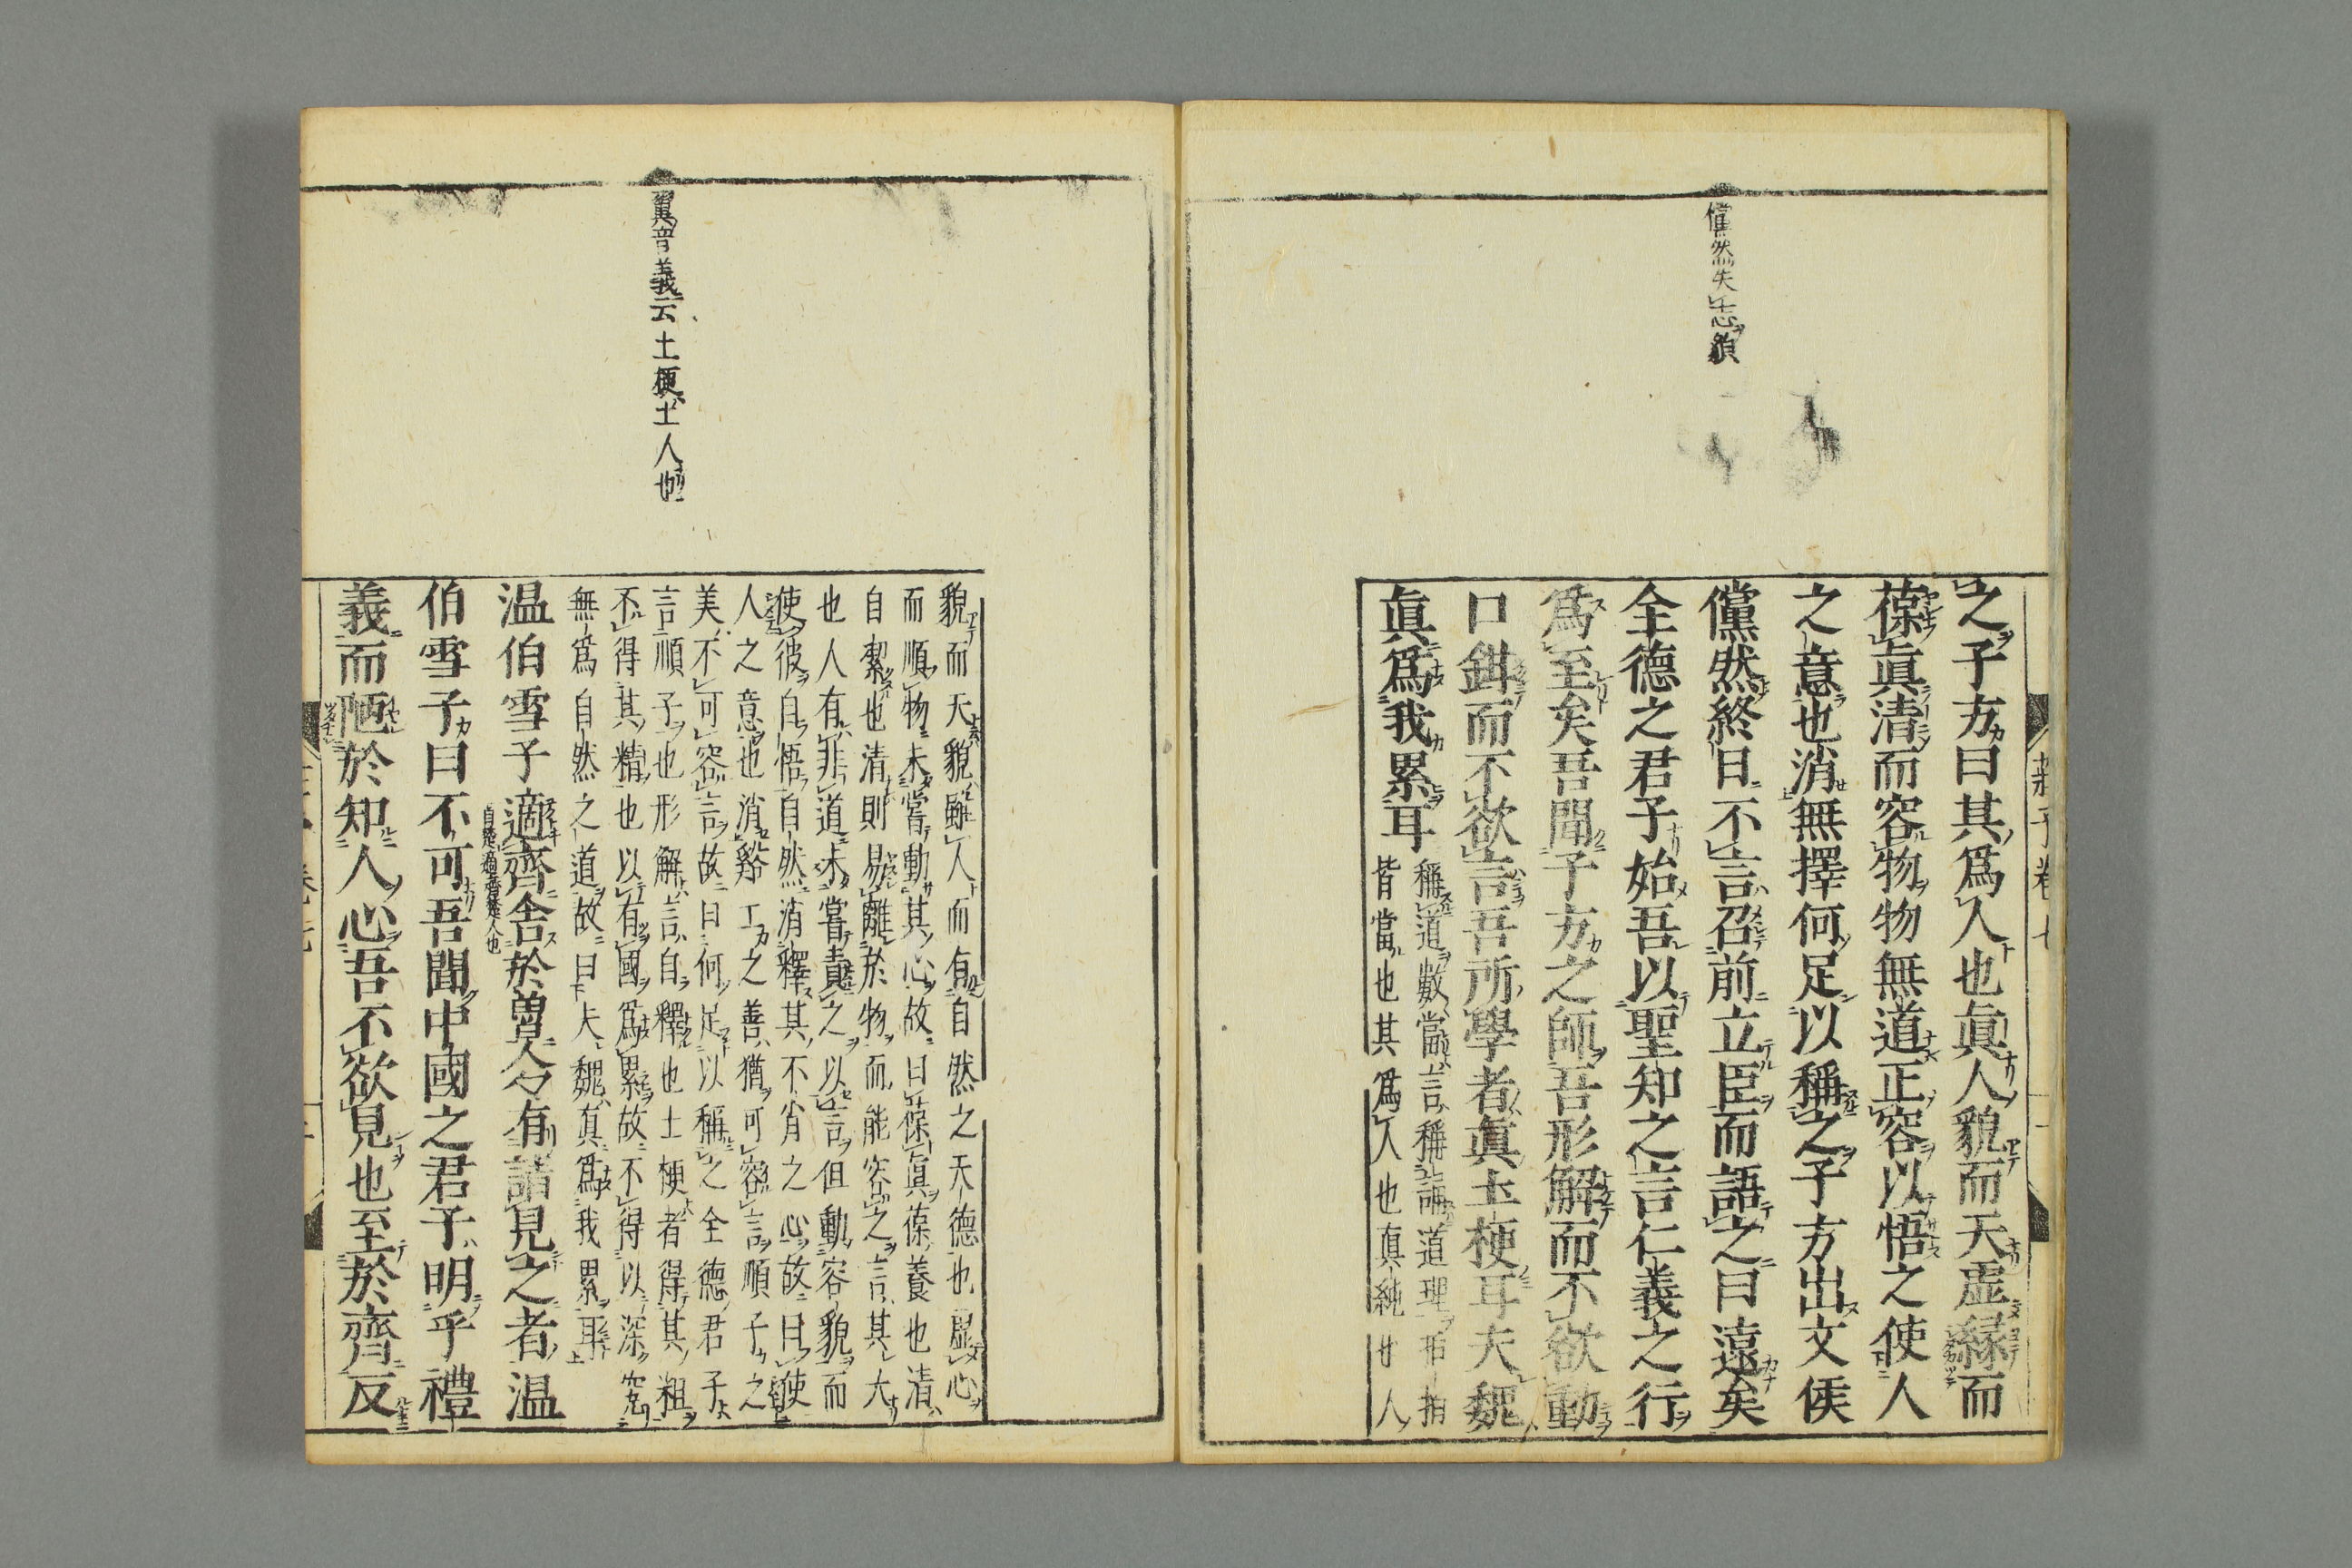 儻然失志貌
之子方曰其爲人也眞人貌而天虛緣而
葆眞清而容物物無道正容以悟之使人
之意也消無擇何足以稱之子方出文侯
儻然終日不言召前立臣而語之曰遠矣
全德之君子始吾以聖知之言仁義之行
爲至矣吾聞子方之師吾形解而不欲動
口鉗而不欲言吾所學者眞土梗耳夫魏
眞爲我累耳
稱道數當言稱誦道理
皆當也其爲人也眞純
莊子卷七
貌而天貌雖人而有自然之天德也虛心
而順物未嘗動其心故曰葆眞葆養也清
自絜也清則易離於物而能容之言其大
也人有非道未嘗責之以言但動容貌而
使彼自悟自然消釋其不肖之心故曰使
人之意也消谿工之善猶可容言順子之
美不可容言故曰何足以稱之全德君子
言順子也形解言自釋也土梗者得其粗
不得其精也以有國爲累故不得以深究
無爲自然之道故曰夫魏眞爲我累耳
翼音義云土梗土人也
温伯雪子適齊舍於魯人々有請見之者温
自楚適齊楚人也
伯雪子曰不可吾聞中國之君子明乎禮
義而陋於知人心吾不欲見也至於齊反